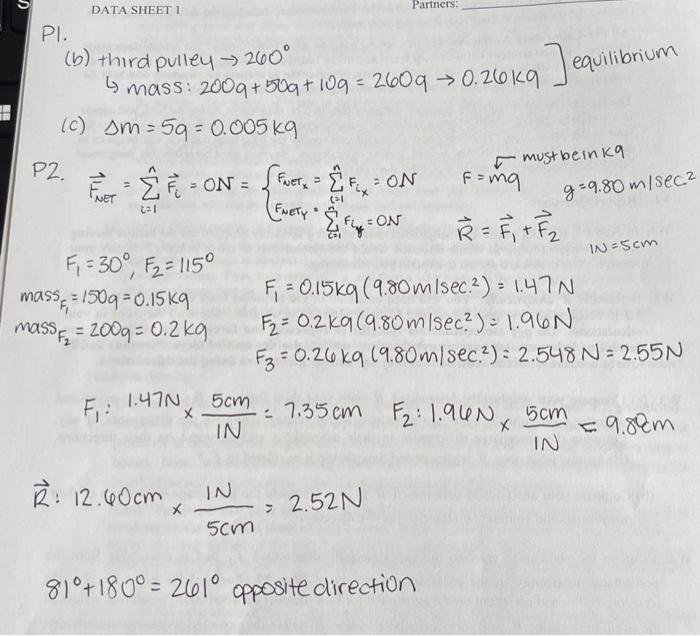 DATA SHEET 1
Partners:
P1.
(b) third pulley → 260°
↳ mass: 200g + 50g + 10g = 260g → 0.26kg ] equilibrium
(c) Δm = 5g = 0.005kg
P2. F⃗NET = Σ(i=1 to n) F⃗i = 0N = { FNETx = Σ(i=1 to n) Fix = 0N
FNETy = Σ(i=1 to n) Fiy = 0N
F = mg must be in kg
g = 9.80 m/sec.²
R⃗ = F⃗1 + F⃗2
1N = 5cm
F1 = 30°, F2 = 115°
massF1 = 150g = 0.15kg
massF2 = 200g = 0.2kg
F1 = 0.15kg (9.80m/sec.²) = 1.47N
F2 = 0.2kg (9.80m/sec.²) = 1.96N
F3 = 0.26kg (9.80m/sec.²) = 2.548N = 2.55N
F1: 1.47N × 5cm/1N = 7.35cm F2: 1.96N × 5cm/1N = 9.8cm
R⃗: 12.60cm × 1N/5cm = 2.52N
81° + 180° = 261° opposite direction